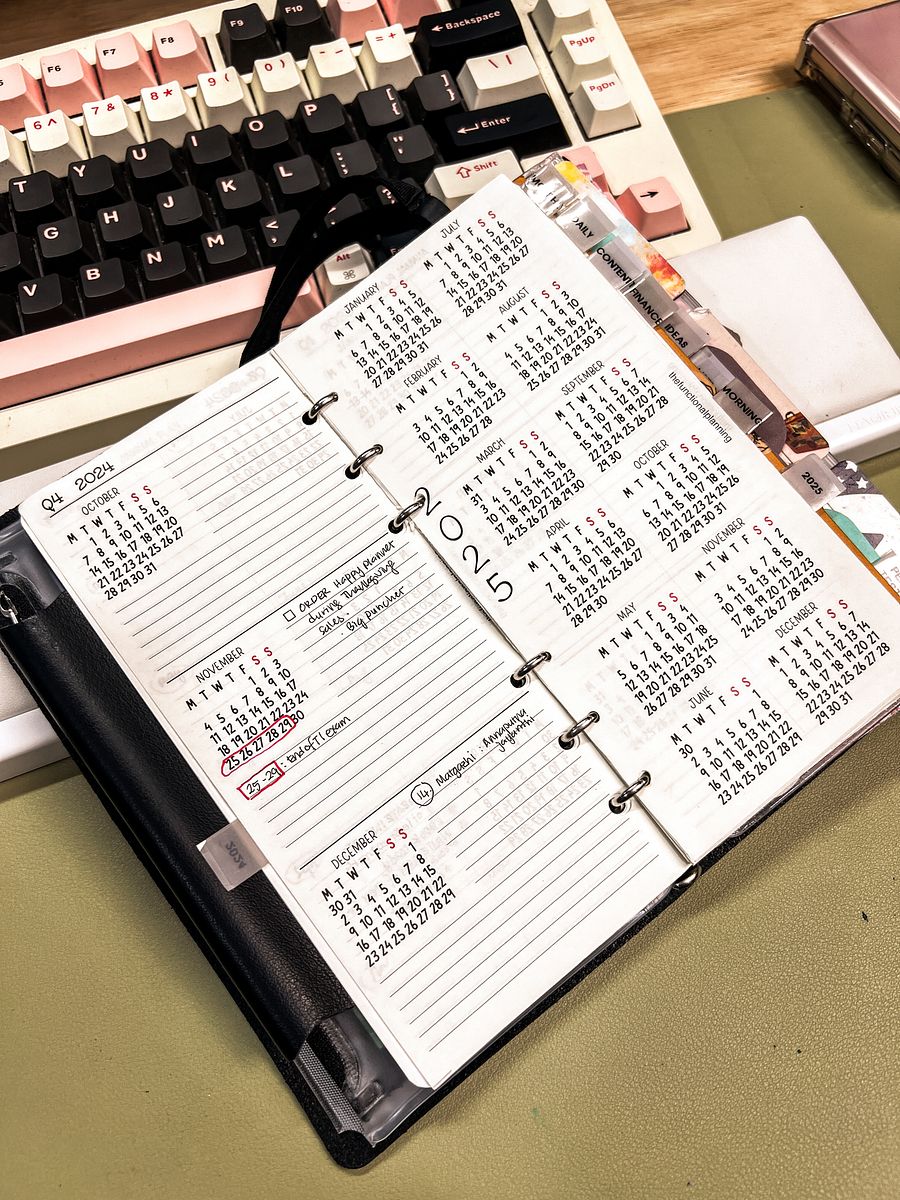 F6 F7 F8 F9 F10
← Backspace
6 ^ 7 & 8 * 9 ( 0 ) - _ = +
PgUp
T Y U I O P [ { ] } \ |
PgDn
G H J K L ; : ' "
Enter
V B N M , <
Shift
Alt
⌘
→
Q4 2024
OCTOBER
M T W T F S S
1 2 3 4 5 6
7 8 9 10 11 12 13
14 15 16 17 18 19 20
21 22 23 24 25 26 27
28 29 30 31
ORDER Happy planner
during Thanksgiving
sales
: Big puncher
NOVEMBER
M T W T F S S
1 2 3
4 5 6 7 8 9 10
11 12 13 14 15 16 17
18 19 20 21 22 23 24
25 26 27 28 29 30
25-29 : End of T1 exam
14 Margashi : Annapurna
Jayanthi
DECEMBER
M T W T F S S
30 31 1
2 3 4 5 6 7 8
9 10 11 12 13 14 15
16 17 18 19 20 21 22
23 24 25 26 27 28 29
2024
2025
JANUARY
M T W T F S S
1 2 3 4 5
6 7 8 9 10 11 12
13 14 15 16 17 18 19
20 21 22 23 24 25 26
27 28 29 30 31
FEBRUARY
M T W T F S S
1 2
3 4 5 6 7 8 9
10 11 12 13 14 15 16
17 18 19 20 21 22 23
24 25 26 27 28
MARCH
M T W T F S S
31 1 2
3 4 5 6 7 8 9
10 11 12 13 14 15 16
17 18 19 20 21 22 23
24 25 26 27 28 29 30
APRIL
M T W T F S S
1 2 3 4 5 6
7 8 9 10 11 12 13
14 15 16 17 18 19 20
21 22 23 24 25 26 27
28 29 30
MAY
M T W T F S S
1 2 3 4
5 6 7 8 9 10 11
12 13 14 15 16 17 18
19 20 21 22 23 24 25
26 27 28 29 30 31
JUNE
M T W T F S S
30 1
2 3 4 5 6 7 8
9 10 11 12 13 14 15
16 17 18 19 20 21 22
23 24 25 26 27 28 29
JULY
M T W T F S S
1 2 3 4 5 6
7 8 9 10 11 12 13
14 15 16 17 18 19 20
21 22 23 24 25 26 27
28 29 30 31
AUGUST
M T W T F S S
1 2 3
4 5 6 7 8 9 10
11 12 13 14 15 16 17
18 19 20 21 22 23 24
25 26 27 28 29 30 31
SEPTEMBER
M T W T F S S
1 2 3 4 5 6 7
8 9 10 11 12 13 14
15 16 17 18 19 20 21
22 23 24 25 26 27 28
29 30
OCTOBER
M T W T F S S
1 2 3 4 5
6 7 8 9 10 11 12
13 14 15 16 17 18 19
20 21 22 23 24 25 26
27 28 29 30 31
NOVEMBER
M T W T F S S
1 2
3 4 5 6 7 8 9
10 11 12 13 14 15 16
17 18 19 20 21 22 23
24 25 26 27 28 29 30
DECEMBER
M T W T F S S
1 2 3 4 5 6 7
8 9 10 11 12 13 14
15 16 17 18 19 20 21
22 23 24 25 26 27 28
29 30 31
thefunctionalplanning
DAILY
CONTENT
FINANCE
IDEAS
MORNING
2025